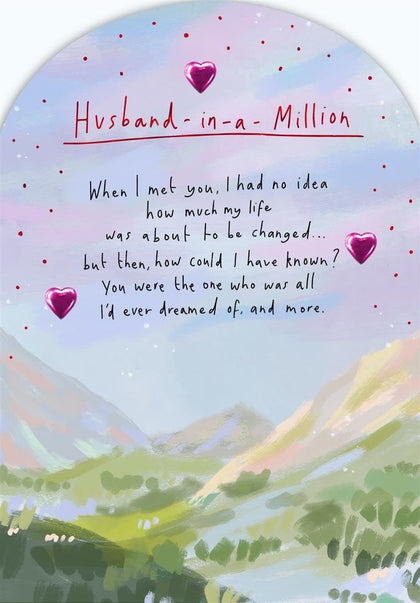 Husband-in-a-Million
When I met you, I had no idea
how much my life
was about to be changed...
but then, how could I have known?
You were the one who was all
I'd ever dreamed of, and more.